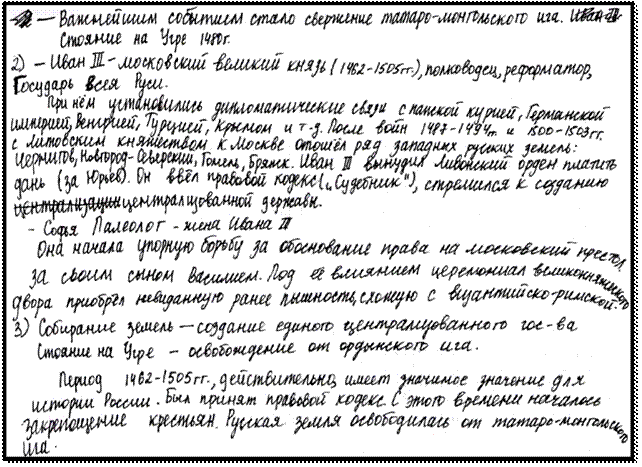 — Важнейшим событием стало свержение татаро-монгольского ига. Иван III
Стояние на Угре 1480г.
2) – Иван III – московский великий князь (1462-1505гг.), полководец, реформатор,
Государь всея Руси.
При нём установились дипломатические связи с папской курией, Германской
империей, Венгрией, Турцией, Крымом и т-д. После войн 1487-1494гг. и 1500-1503гг.
с Литовским княжеством к Москве отошёл ряд западных русских земель:
Чернигов, Новгород-Северский, Гомель, Брянск. Иван III вынудил Ливонский орден платить
дань (за Юрьев). Он ввёл правовой кодекс („Судебник"), стремился к созданию
централизации централизованной державы.
- Софья Палеолог - жена Ивана III
Она начала упорную борьбу за обоснование права на московский престол
за своим сыном Василием. Под её влиянием церемониал великокняжеского
двора приобрёл невиданную ранее пышность, схожую с византийско-римской.
3) Собирание земель — создание единого централизованного гос-ва
Стояние на Угре – освобождение от ордынского ига.
Период 1462-1505гг., действительно, имеет значимое значение для
истории России. Был принят правовой кодекс. С этого времени началось
закрепощение крестьян. Русская земля освободилась от татаро-монгольского
ига.